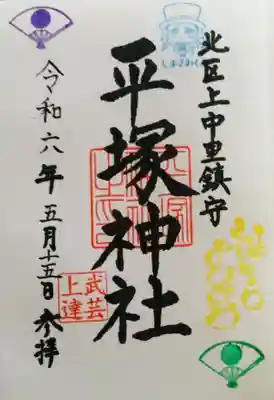 北区上中里鎮守
平塚神社
令和六年五月十五日参拝
武芸
上達